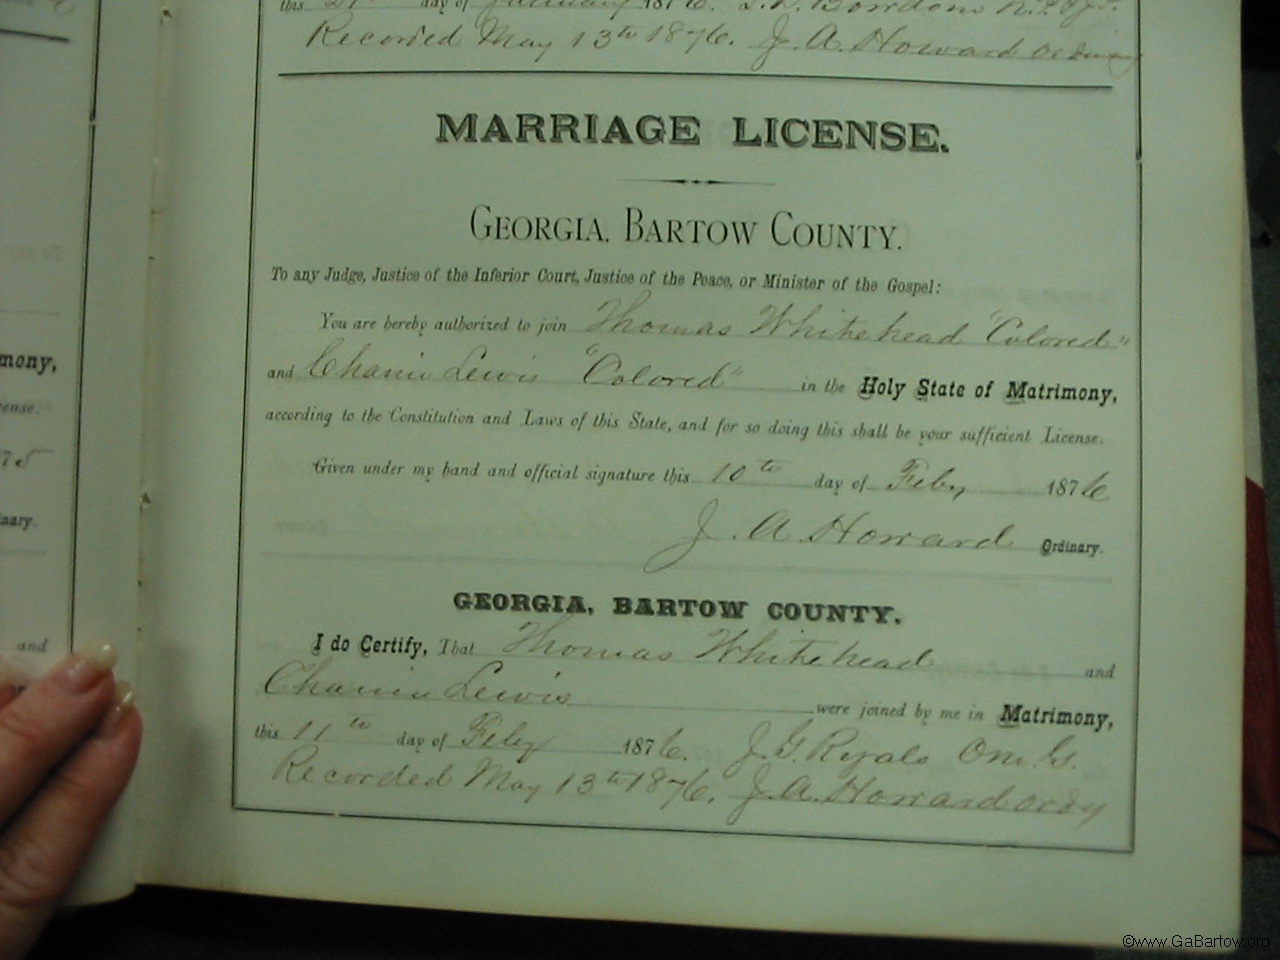 this 21st day of January 1876.
Recorded May 13th 1876. J. A. Howard Ordinary
MARRIAGE LICENSE.
GEORGIA, BARTOW COUNTY.
To any Judge, Justice of the Inferior Court, Justice of the Peace, or Minister of the Gospel:
You are hereby authorized to join Thomas Whitehead "Colored"
and Lewis "Colored" in the Holy State of Matrimony,
according to the Constitution and Laws of this State, and for so doing this shall be your sufficient License.
Given under my hand and official signature this 10th day of Feby 1876
J. A. Howard Ordinary.
GEORGIA, BARTOW COUNTY.
I do Certify, That Thomas Whitehead and
Lewis were joined by me in Matrimony,
this 11th day of Feby 1876. J. G. Ryals
Recorded May 13th 1876. J. A. Howard ordy
mony,
ense.
75
nary.
and
©www.GaBartow.org